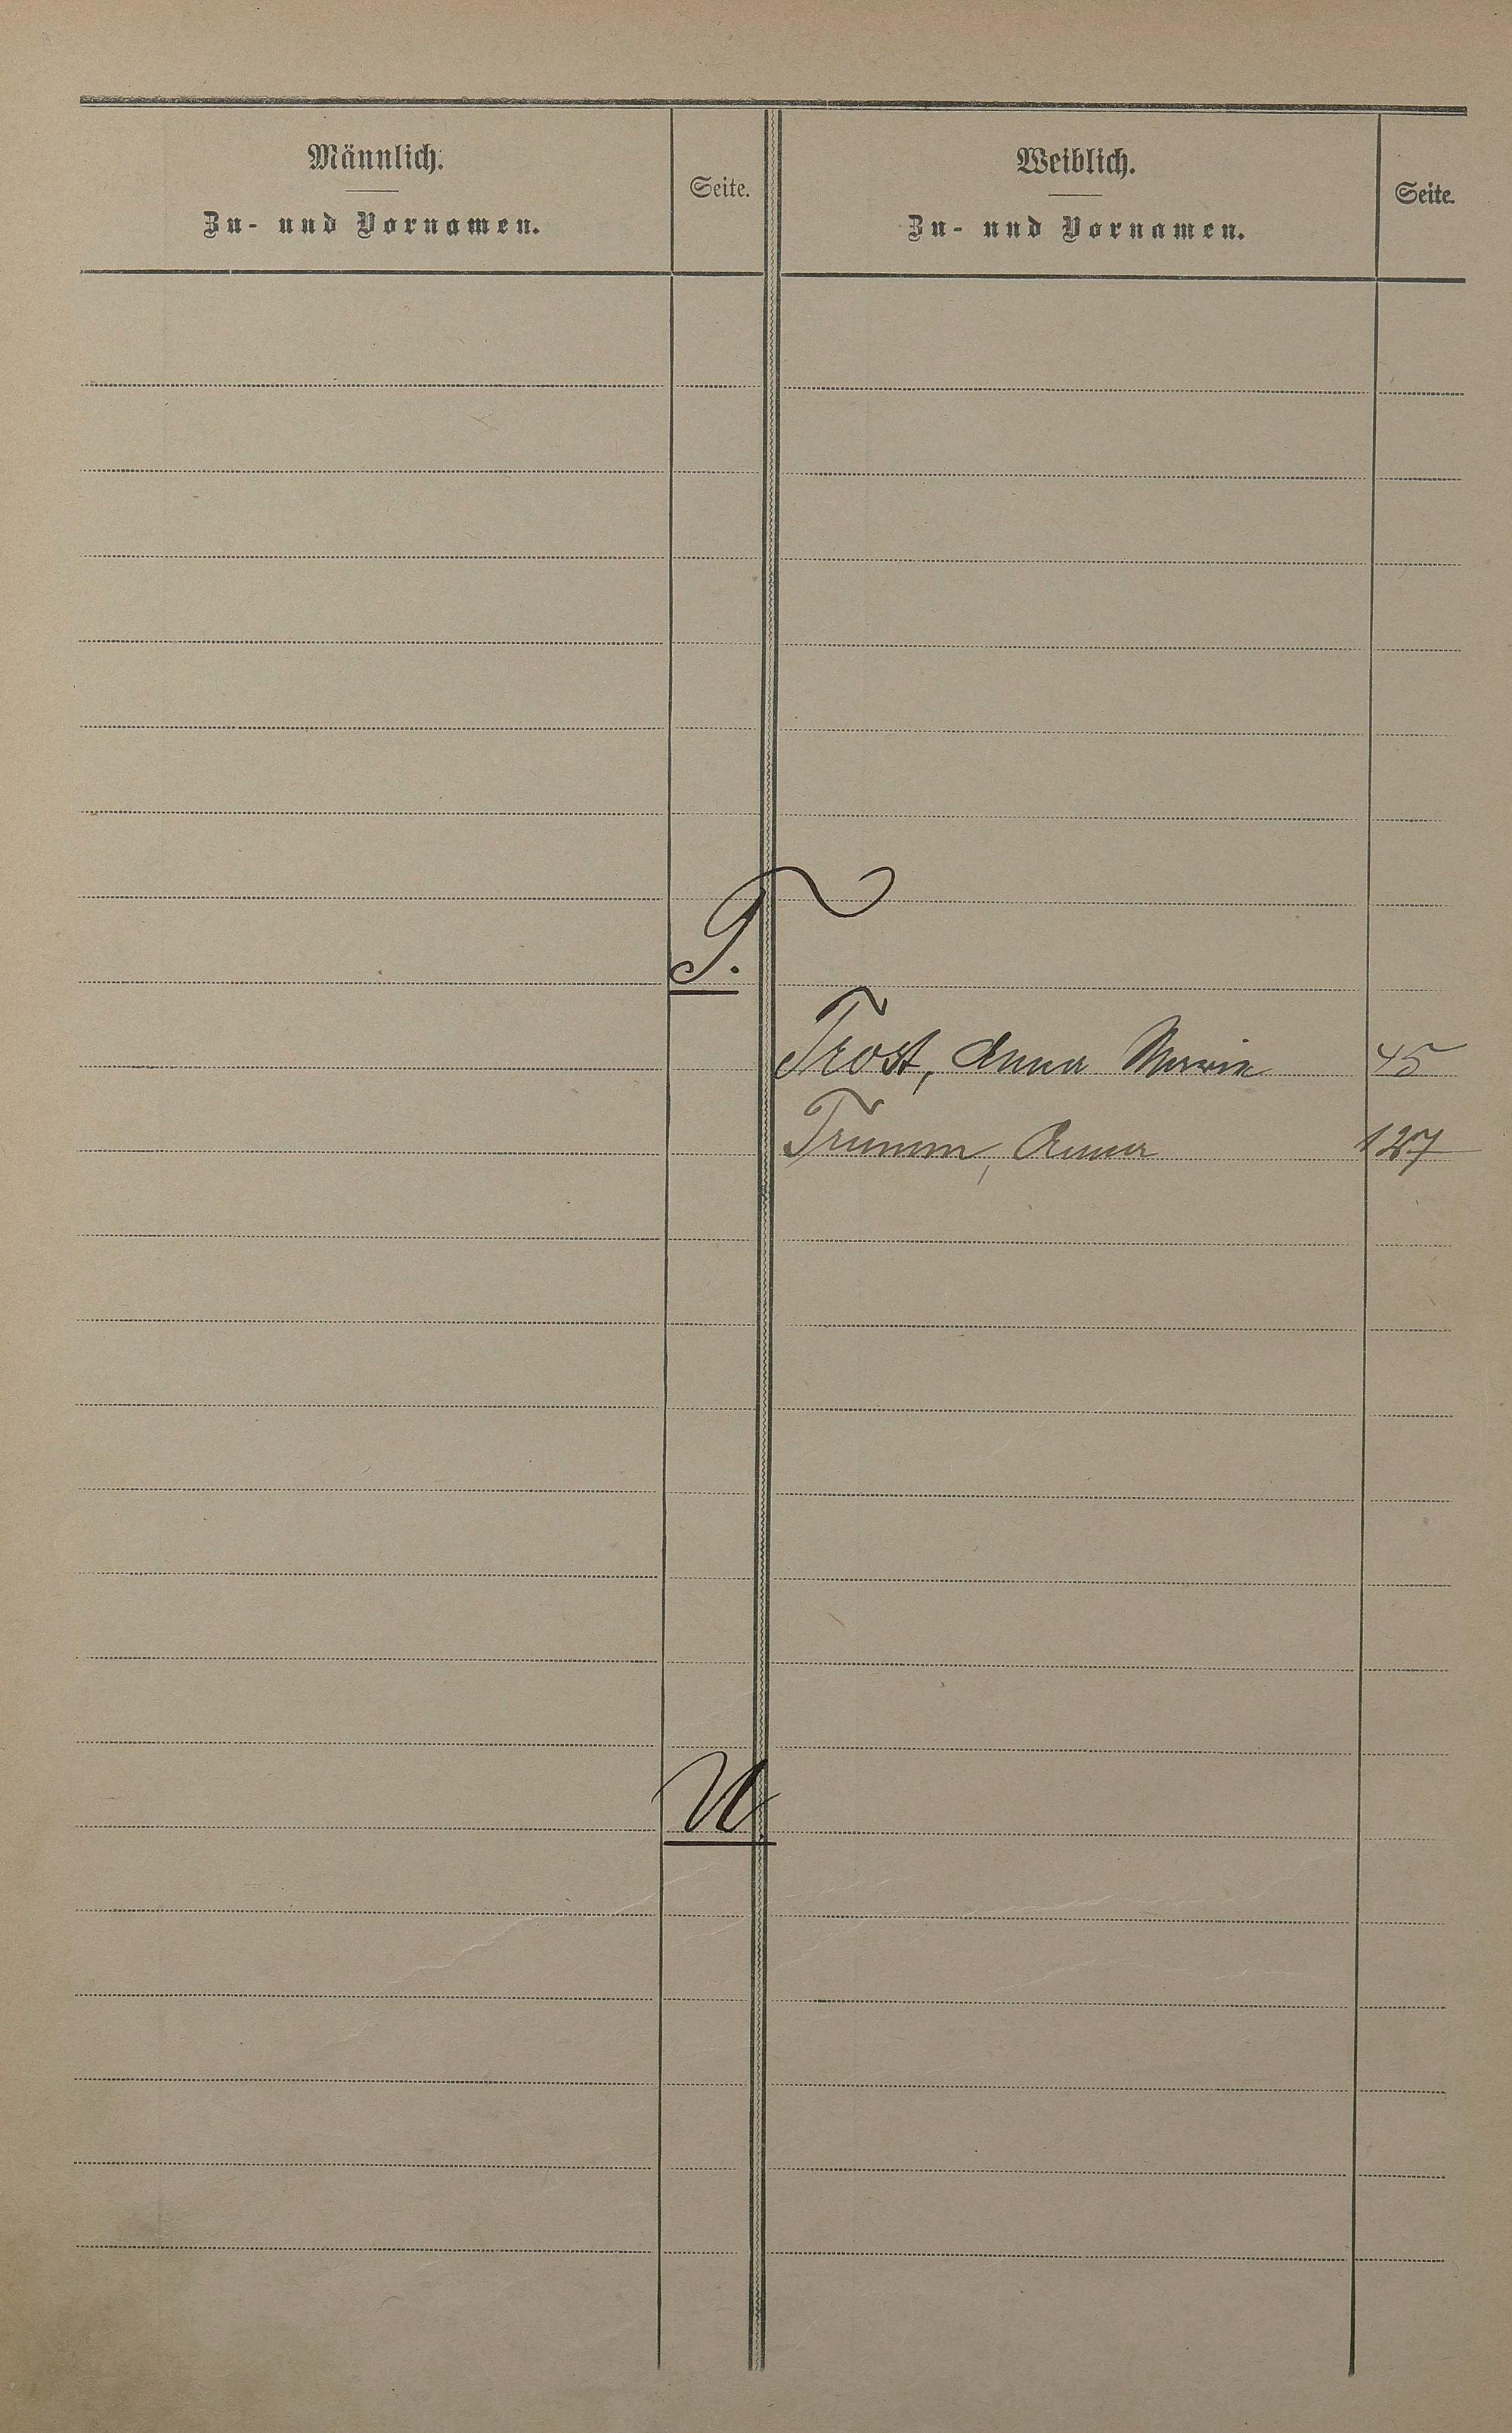 Männlich.
Zu- und Vornamen.
Seite.
Weiblich.
Zu- und Vornamen.
Seite.
T.
Trost, Anna Maria 45
Trumm, Anna 127
U.